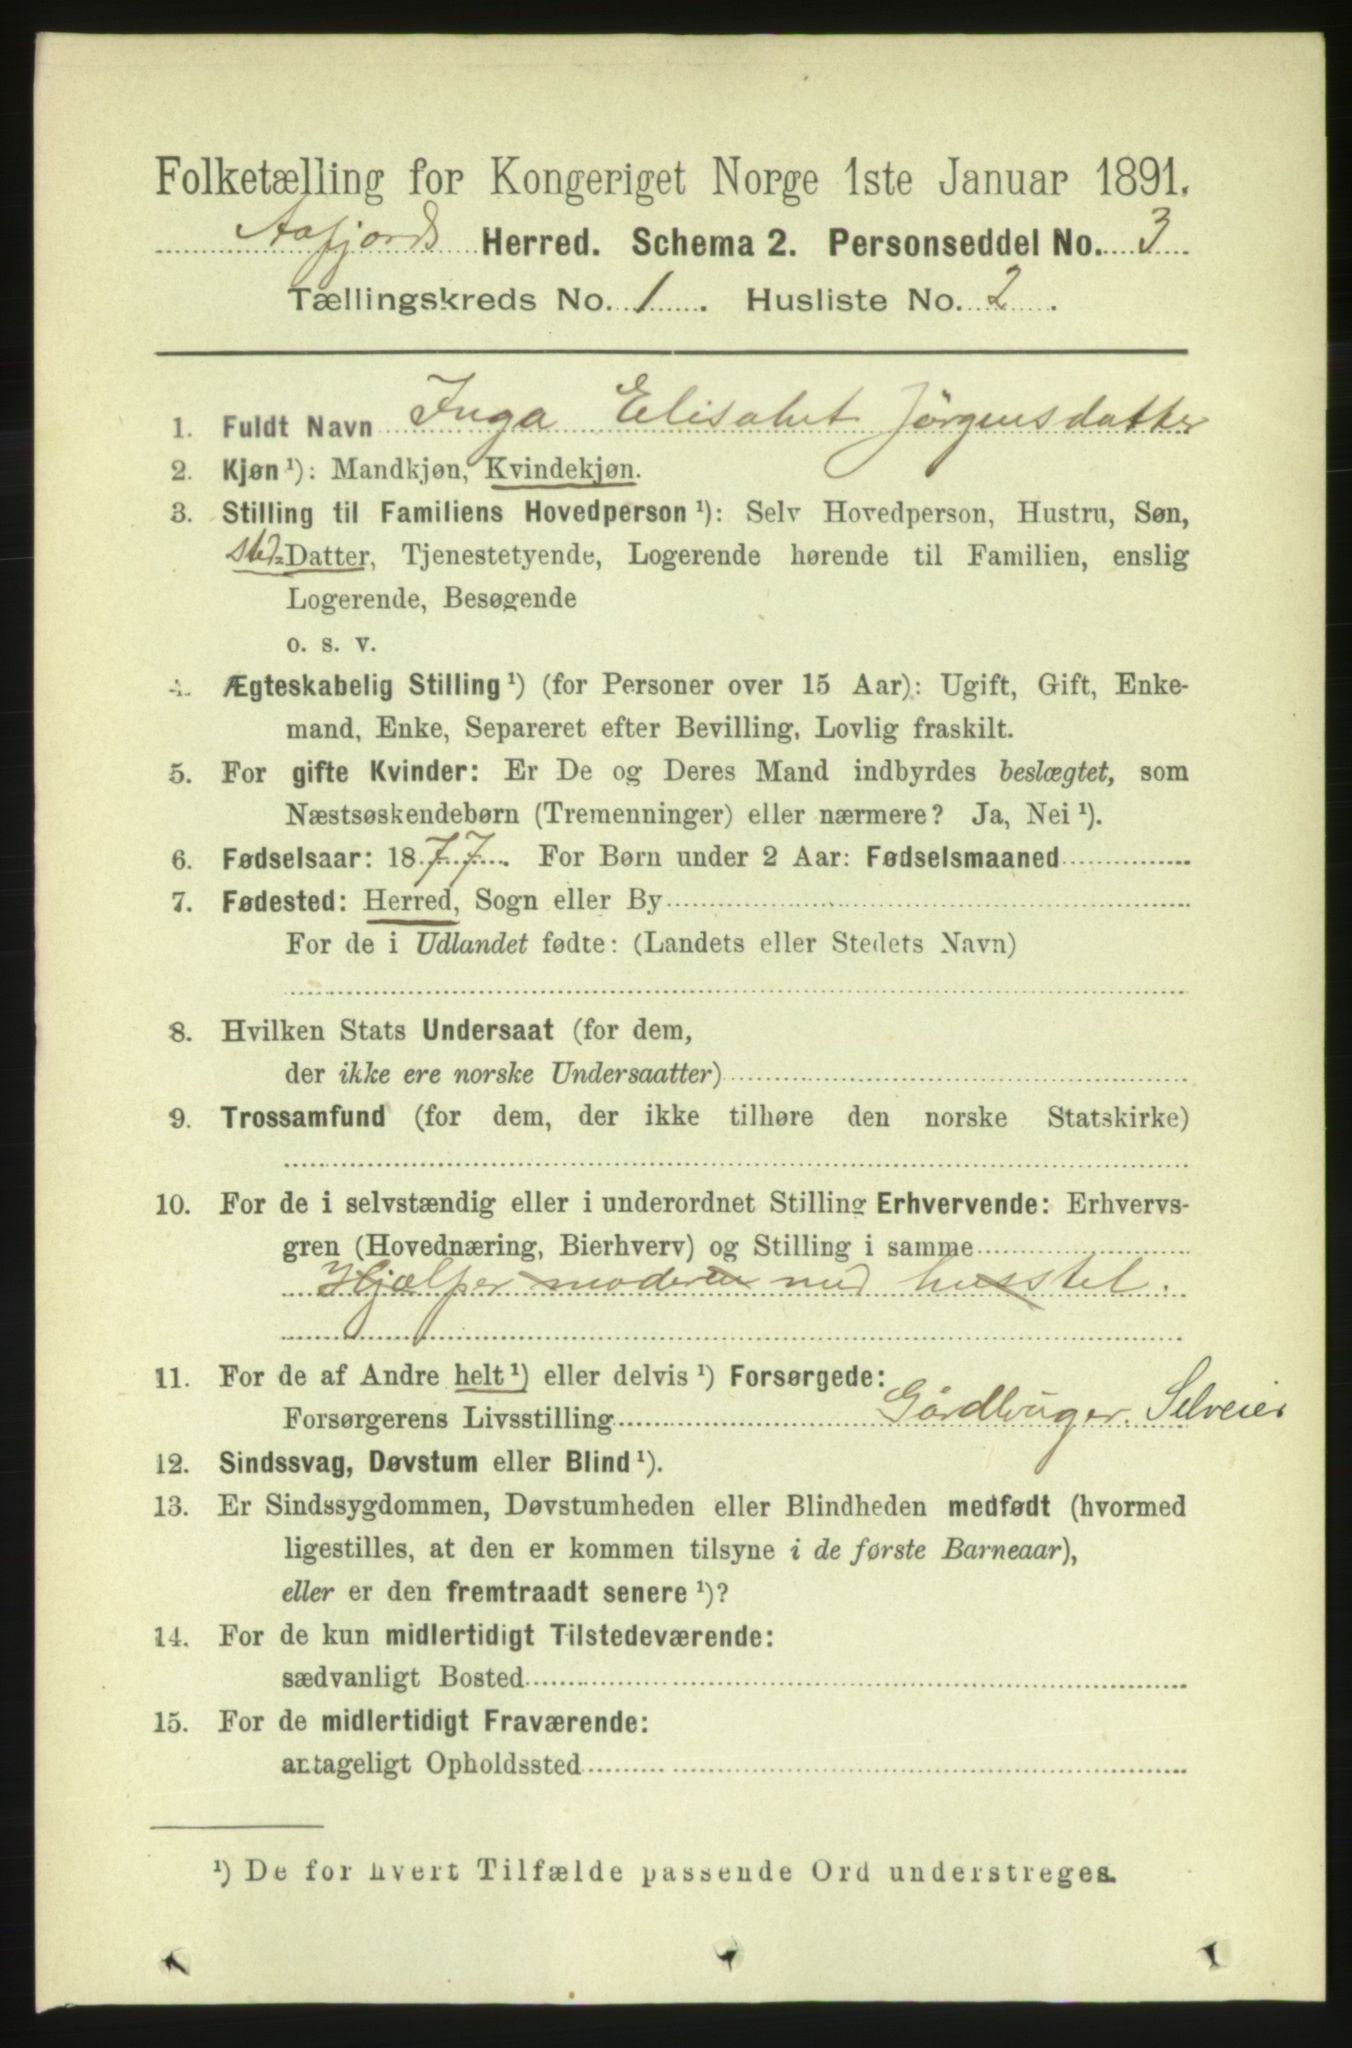 Folketælling for Kongeriget Norge 1ste Januar 1891.
Aafjords Herred. Schema 2. Personseddel No. 3
Tællingskreds No. 1. Husliste No. 2.
1. Fuldt Navn Inga Elisabet Jörgensdatter
2. Kjøn ¹): Mandkjøn, Kvindekjøn.
3. Stilling til Familiens Hovedperson ¹): Selv Hovedperson, Hustru, Søn,
sted=Datter, Tjenestetyende, Logerende hørende til Familien, enslig
Logerende, Besøgende
o. s. v.
4. Ægteskabelig Stilling ¹) (for Personer over 15 Aar): Ugift, Gift, Enke-
mand, Enke, Separeret efter Bevilling, Lovlig fraskilt.
5. For gifte Kvinder: Er De og Deres Mand indbyrdes beslægtet, som
Næstsøskendebørn (Tremenninger) eller nærmere? Ja, Nei ¹).
6. Fødselsaar: 1877. For Børn under 2 Aar: Fødselsmaaned
7. Fødested: Herred, Sogn eller By
For de i Udlandet fødte: (Landets eller Stedets Navn)
8. Hvilken Stats Undersaat (for dem,
der ikke ere norske Undersaatter)
9. Trossamfund (for dem, der ikke tilhøre den norske Statskirke)
10. For de i selvstændig eller i underordnet Stilling Erhvervende: Erhvervs-
gren (Hovednæring, Bierhverv) og Stilling i samme
Hjælper moderen med husstel.
11. For de af Andre helt ¹) eller delvis ¹) Forsørgede:
Forsørgerens Livsstilling Gårdbruger. Selveier
12. Sindssvag, Døvstum eller Blind ¹).
13. Er Sindssygdommen, Døvstumheden eller Blindheden medfødt (hvormed
ligestilles, at den er kommen tilsyne i de første Barneaar),
eller er den fremtraadt senere ¹)?
14. For de kun midlertidigt Tilstedeværende:
sædvanligt Bosted
15. For de midlertidigt Fraværende:
antageligt Opholdssted
¹) De for hvert Tilfælde passende Ord understreges.